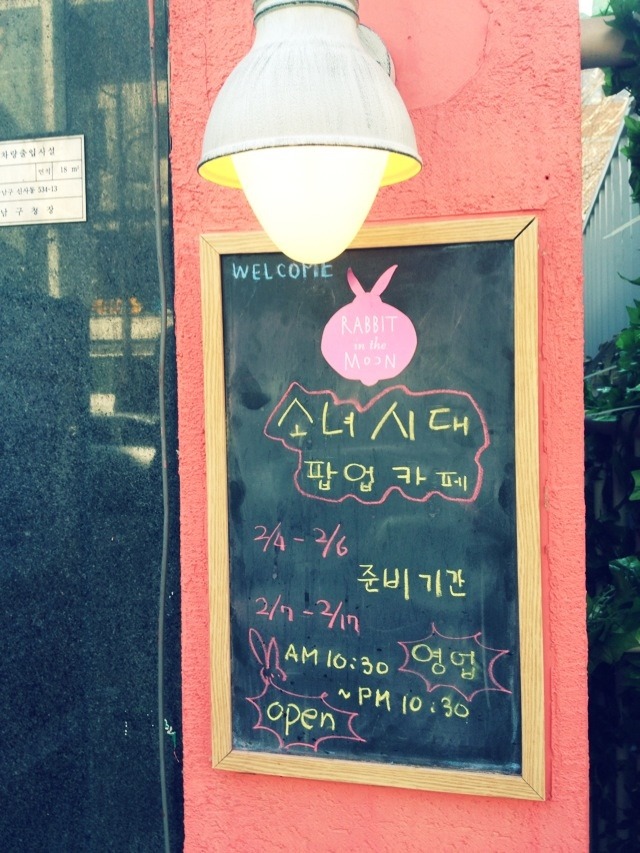 차량출입시설
면적 18 m²
남구 신사동 534-13
남구청장
WELCOME
RABBIT
in the
MOON
소녀시대
팝업카페
2/4 - 2/6
준비기간
2/7 - 2/17
AM 10:30 영업
~PM 10:30
open